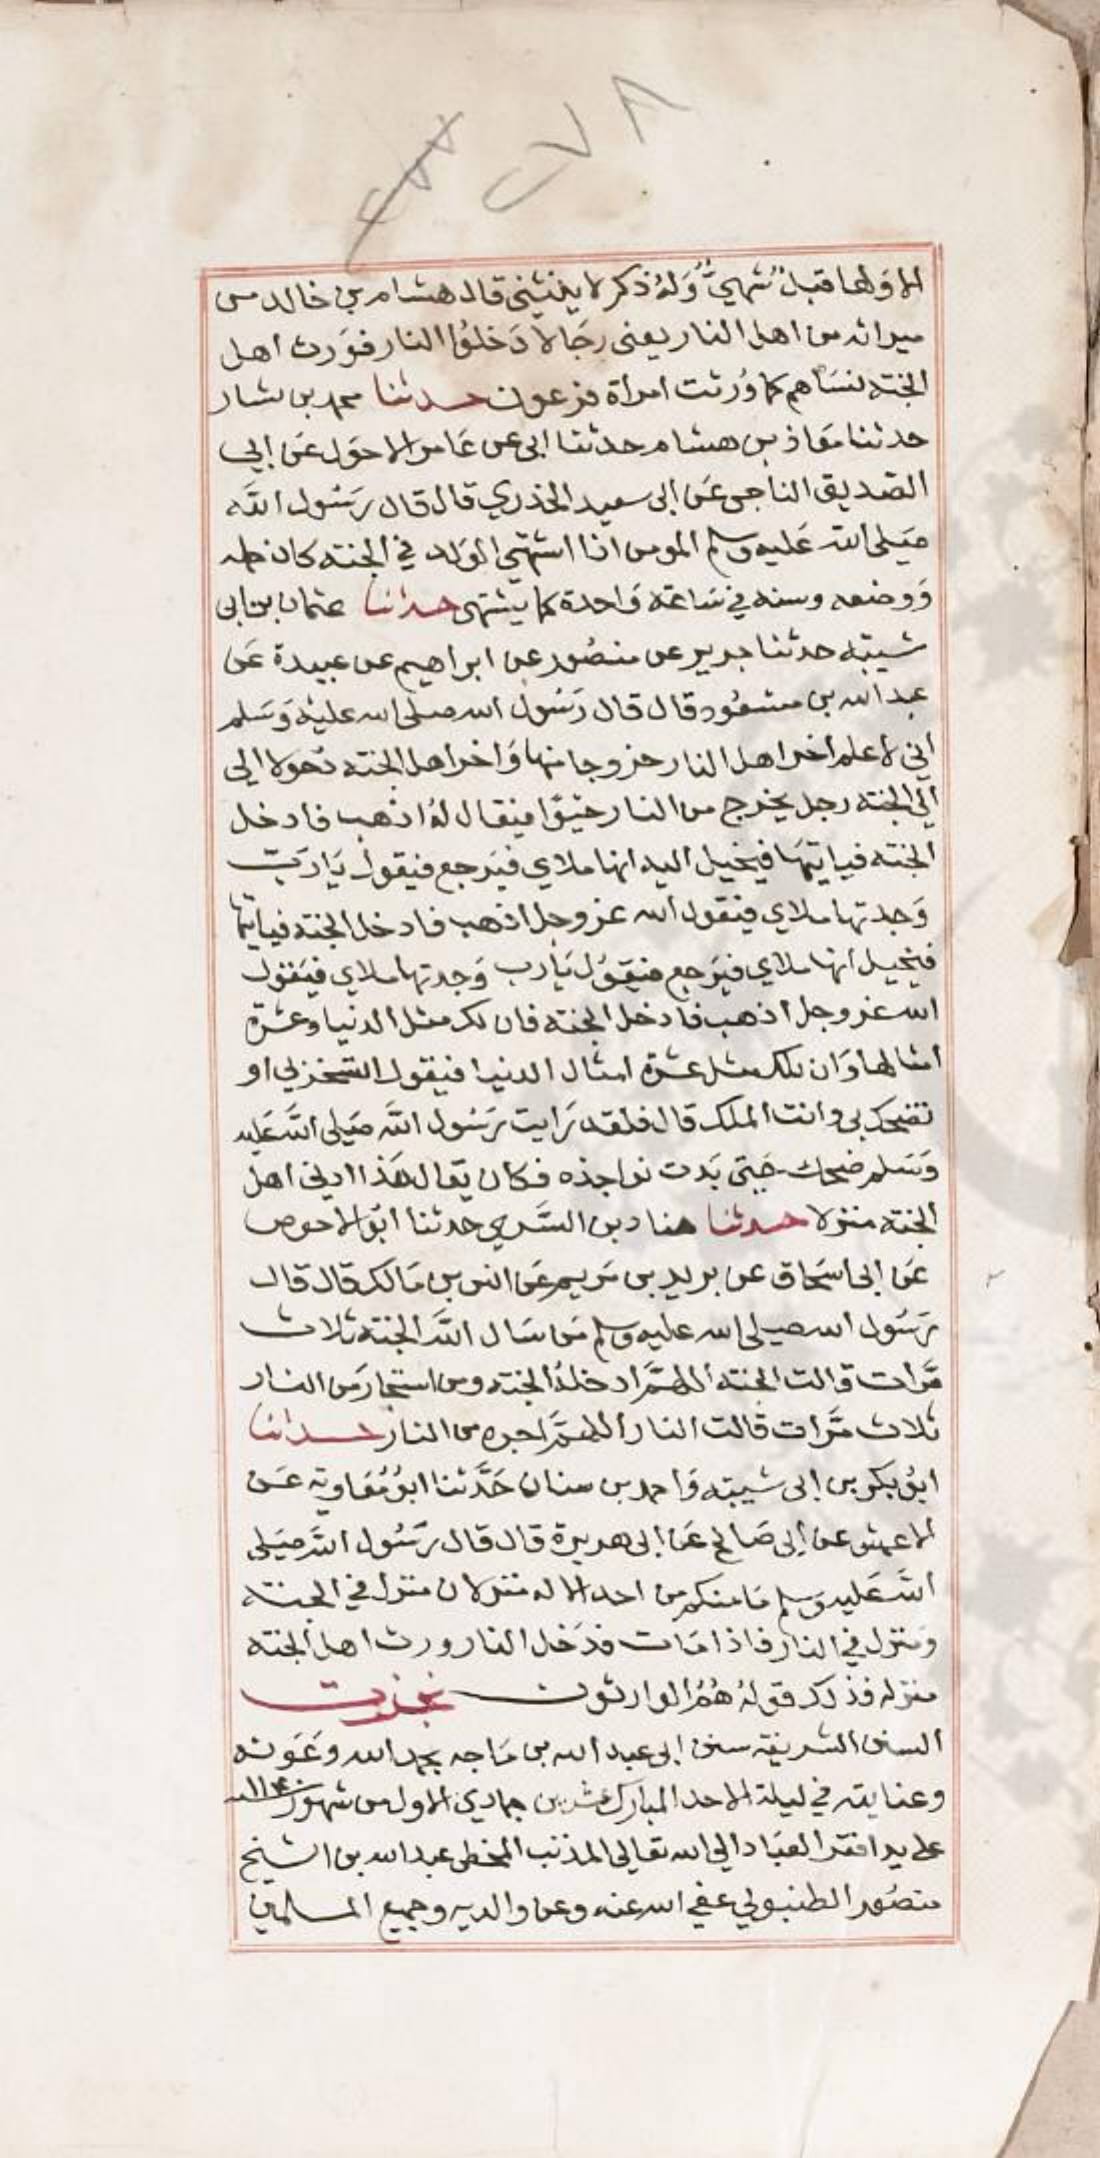 ٢٧٨
الا ولها قبل شهي وله ذكر لا ينثني قال هشام بن خالد من
ميراثه من اهل النار يعني رجالا دخلوا النار فورث اهل
الجنة نساهم كما ورثت امراة فرعون حدثنا محمد بن بشار
حدثنا معاذ بن هشام حدثنا ابي عن عامر الاحول عن ابي
الصديق الناجي عن ابي سعيد الخذري قال قال رسول الله
صلى الله عليه وسلم المومن اذا اشتهى الولد في الجنة كان حمله
ووضعه وسنه في ساعة واحدة كما يشتهي حدثنا عثمان بن ابي
شيبة حدثنا جرير عن منصور عن ابراهيم عن عبيدة عن
عبد الله بن مسعود قال قال رسول الله صلى الله عليه وسلم
اني لاعلم اخر اهل النار خروجا منها واخر اهل الجنة دخولا الي
الي الجنة رجل يخرج من النار حبوا فيقال له اذهب فادخل
الجنة فياتيها فيخيل اليه انها ملاي فيرجع فيقول يارب
وجدتها ملاي فيقول الله عز وجل اذهب فادخل الجنة فياتيها
فيخيل انها ملاي فيرجع فيقول يارب وجدتها ملاي فيقول
الله عز وجل اذهب فادخل الجنة فان لك مثل الدنيا وعشرة
امثالها وان لك مثل عشرة امثال الدنيا فيقول اتسخر بي او
تضحك بي وانت الملك قال فلقد رايت رسول الله صلى الله عليه
وسلم ضحك حتى بدت نواجذه فكان يقال هذا ادني اهل
الجنة منزلا حدثنا هناد بن السري حدثنا ابو الاحوص
عن ابي اسحاق عن بريد بن مريم عن انس بن مالك قال قال
رسول الله صلى الله عليه وسلم من سال الله الجنة ثلاث
مرات قالت الجنة اللهم ادخله الجنة ومن استجار من النار
ثلاث مرات قالت النار اللهم اجره من النار حدثنا
ابو بكر بن ابي شيبة واحمد بن سنان حدثنا ابو معاوية عن
الاعمش عن ابي صالح عن ابي هريرة قال قال رسول الله صلى
الله عليه وسلم ما منكم من احد الا له منزلان منزل في الجنة
ومنزل في النار فاذا مات فدخل النار ورث اهل الجنة
منزله فذلك قوله هم الوارثون نجزت
السنن الشريفة سنن ابي عبد الله بن ماجه بحمد الله وعونه
وعنايته في ليلة الاحد المبارك عشرين جمادي الاول من شهور
على يد افقر العباد الى الله تعالى المذنب المخطي عبد الله بن الشيخ
منصور الطنبولي عفي الله عنه وعن والديه وجميع المسلمين